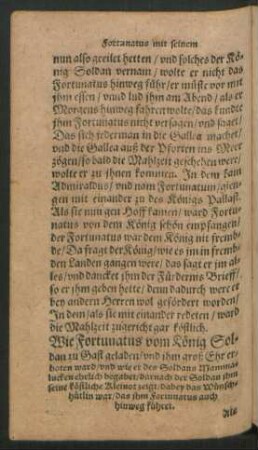 Fortunatus mit seinem
nun also geeilet hetten / vnd solches der Kö-
nig Soldan vernam / wolte er nicht das
Fortunatus hinweg führ / er müste vor mit
jhm essen / vnnd lud jhn am Abend / als er
Morgens hinweg fahren wolte / das kundte
jhm Fortunatus nicht versagen / vnd saget /
Das sich jederman in die Gallea machet /
vnd die Gallea auß der Pforten ins Meer
zögen / so bald die Mahlzeit geschehen were /
wolte er zu jhnen kommen. In dem kam
Admiraldus / vnd nam Fortunatum / gien-
gen mit einander zu des Königs Pallast.
Als sie nun gen Hoff kamen / ward Fortu-
natus von dem König schön empfangen /
der Fortunatus war dem König nit fremb-
de / Da fragt der König / wie es jm in fremb-
den Landen gangen were / das sagt er jm al-
les / vnd dancket jhm der Fürdernis Brieff /
so er jhm geben hette / denn dadurch were er
bey andern Herren wol gefördert worden /
In dem / als sie mit einander redeten / ward
die Mahlzeit zugericht gar köstlich.
Wie Fortunatus vom König Sol-
dan zu Gast geladen / vnd jhm groß Ehr er-
boten ward / vnd wie er des Soldans Mamma-
lucken ehrlich begabet / darnach der Soldan jhm
seine köstliche Kleinot zeigt / dabey das Wünsch-
hütlin war / das jhm Fortunatus auch
hinweg führet.
Als